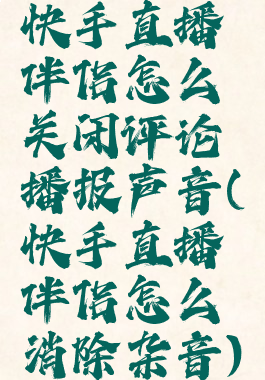 快手直播
伴侣怎么
关闭评论
播报声音(
快手直播
伴侣怎么
消除杂音)